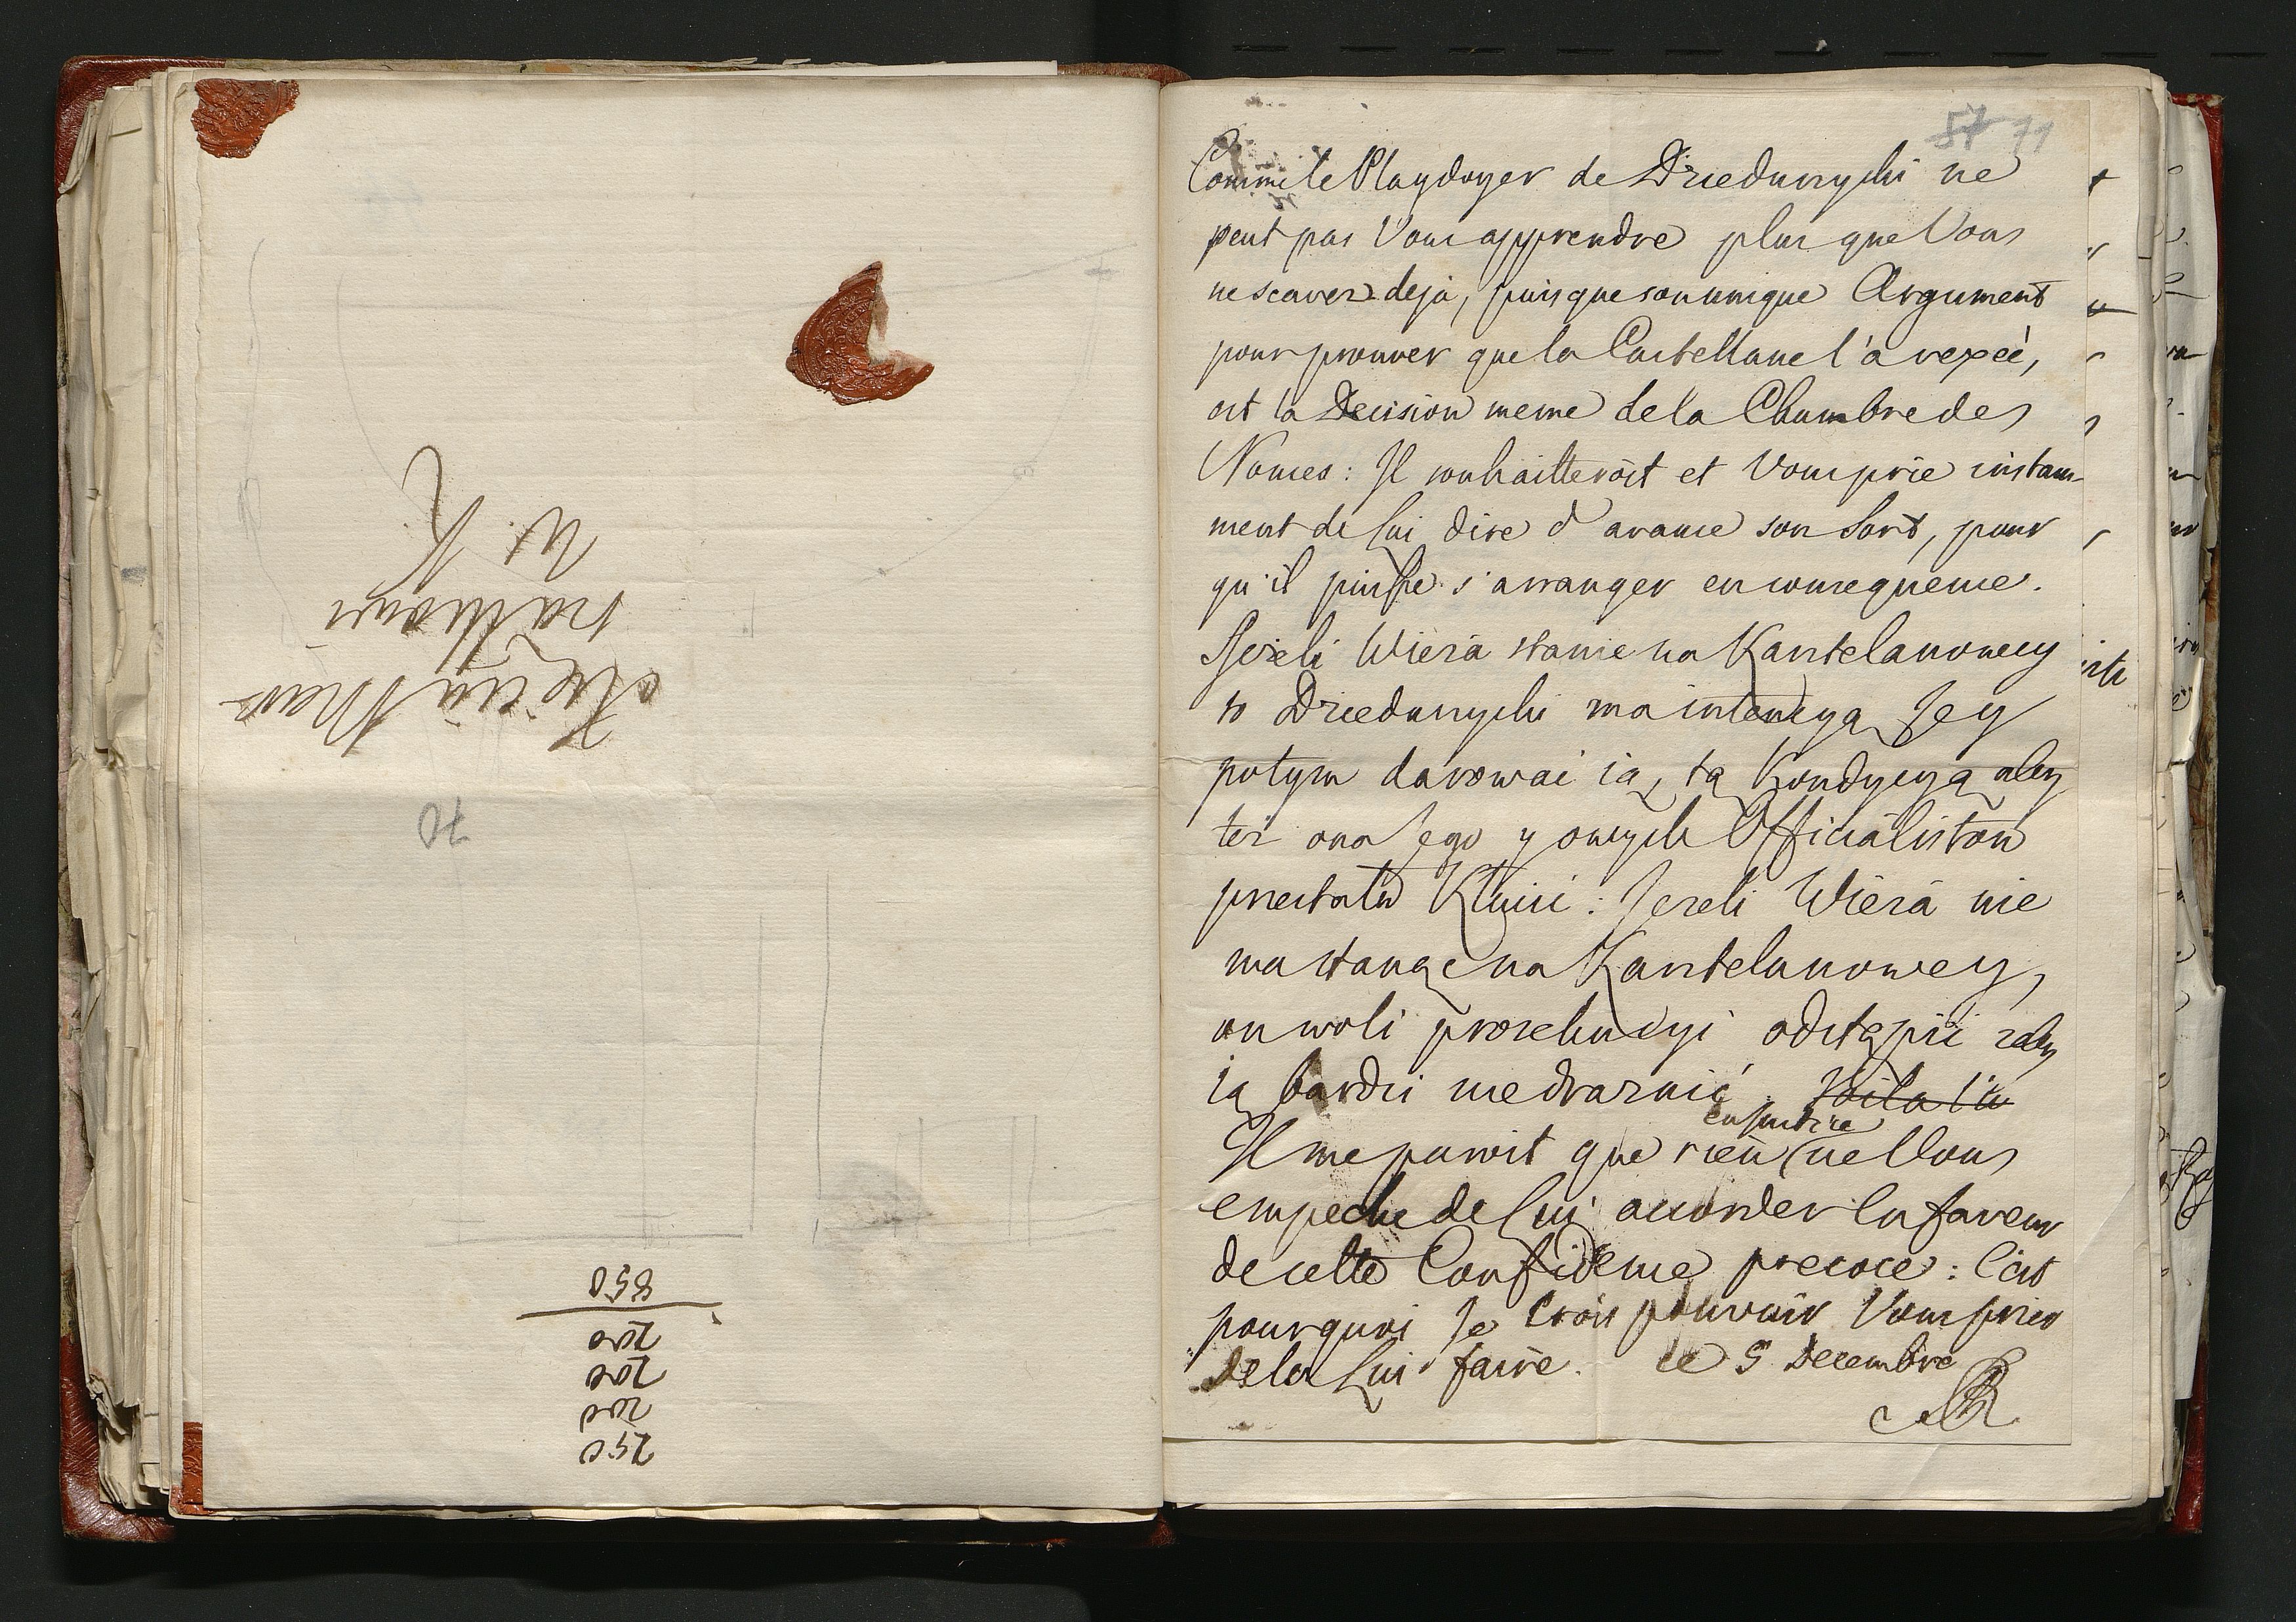 Xięcia Mar-
szałkowi
W. K.
70
250
200
200
200
850
57 71
Comme le Playdoyer de Dzieduszycki ne
peut pas Vous apprendre plus que Vous
ne scavez deja, puisque son unique Argument
pour prouver que la Castellane l'a vexeé,
est la Decision meme de la Chambre des
Nonces: Il souhaitteroit et Vous prie instam-
ment de Lui dire d'avance son Sort, pour
qu'il puisse s'arranger en consequence.
Jezeli Wieza stanie na Kasztelanowey
to Dzieduszycki ma intencyą Jey
potym darować ią, tą Kondycyą aby
też ona Jego y swych Officialistow
przestała Kłucic: Jezeli Wieza nie
ma stanąc na Kasztelanowey,
on woli prozekucyi odstąpić zeby
ią bardzi niedraznić. Voila l'a
en justice
Il me paroit que rien ne Vous
empeche de Lui accorder la faveur
de cette Confidence precoce: C'est
pourquoi Je Crois pouvoir Vous prier
de la Lui faire. ce 5 Decembre
SAR